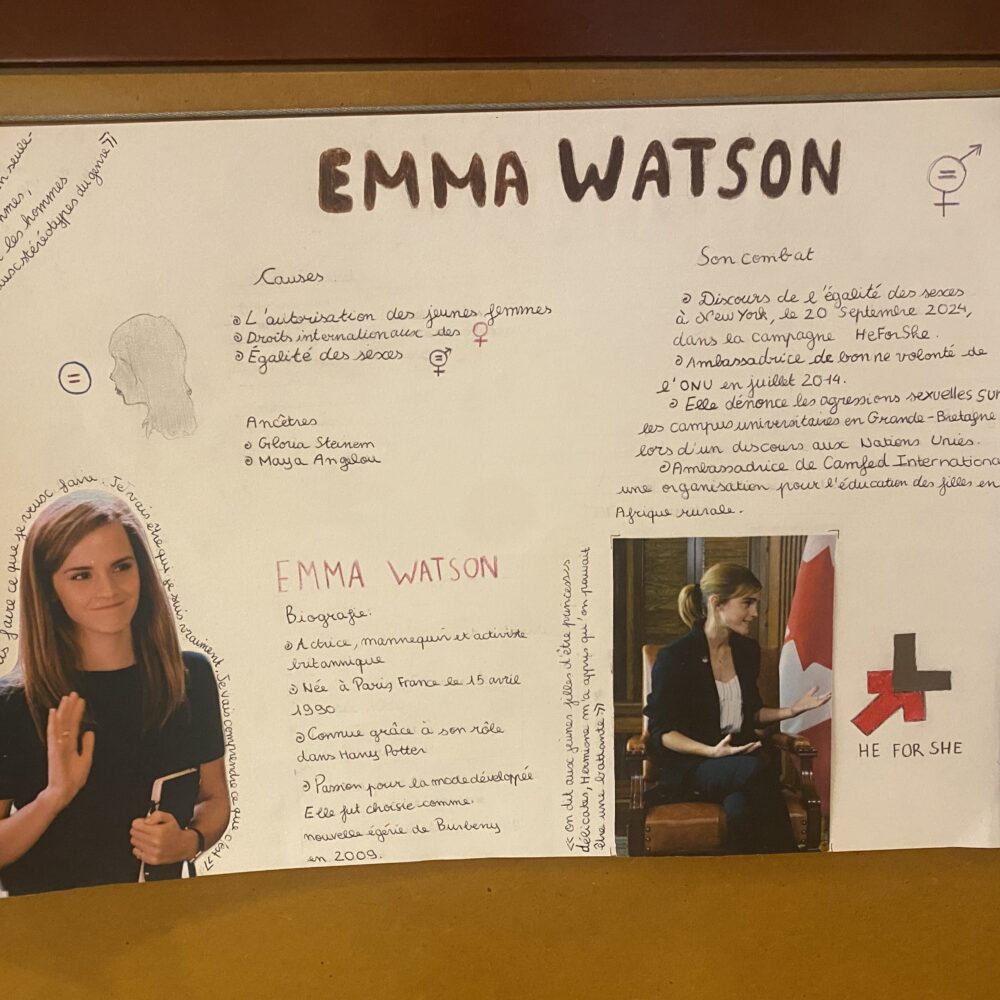 n seule-
mmes,
les hommes
aux stéréotypes du genre »
EMMA WATSON
=
Causes
L'autorisation des jeunes femmes
Droits internationaux des ♀
Égalité des sexes
=
Ancêtres
Gloria Steinem
Maya Angelou
Son combat
Discours de l'égalité des sexes
à New York, le 20 Septembre 2024,
dans la campagne HeForShe.
Ambassadrice de bonne volonté de
l'ONU en juillet 2014.
Elle dénonce les agressions sexuelles sur
les campus universitaires en Grande-Bretagne
lors d'un discours aux Nations Unies.
Ambassadrice de Camfed Internationa
une organisation pour l'éducation des filles en
Afrique rurale.
is faire ce que je veux faire. Je vais être qui je suis vraiment. Je vais comprendre ce que c'est »
EMMA WATSON
Biografie:
Actrice, mannequin et activiste
britannique
Née à Paris France le 15 avril
1990
Connue grâce à son rôle
dans Harry Potter
Passion pour la mode développée
Elle fut choisie comme
nouvelle égérie de Burberry
en 2009.
« on dit aux jeunes filles d'être princesses
délicates, Hermione m'a appris qu'on pouvait
être une battante »
HE FOR SHE